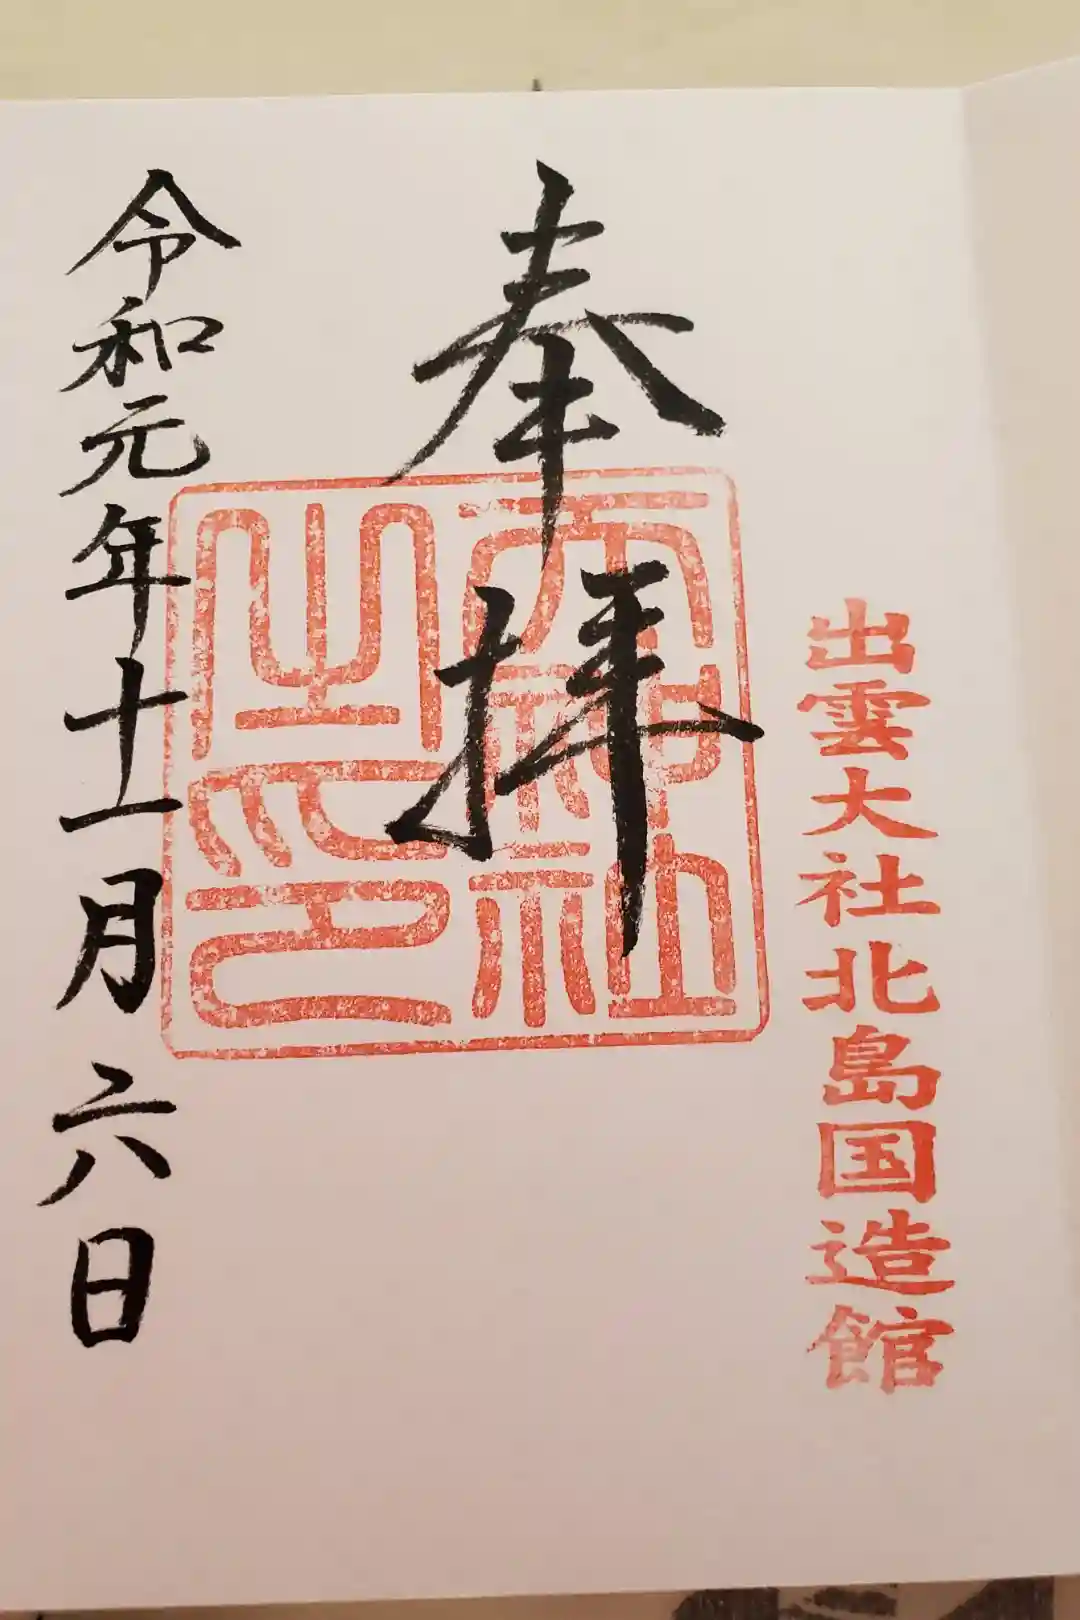 出雲大社北島国造館
奉拝
天神社之印
令和元年十一月六日